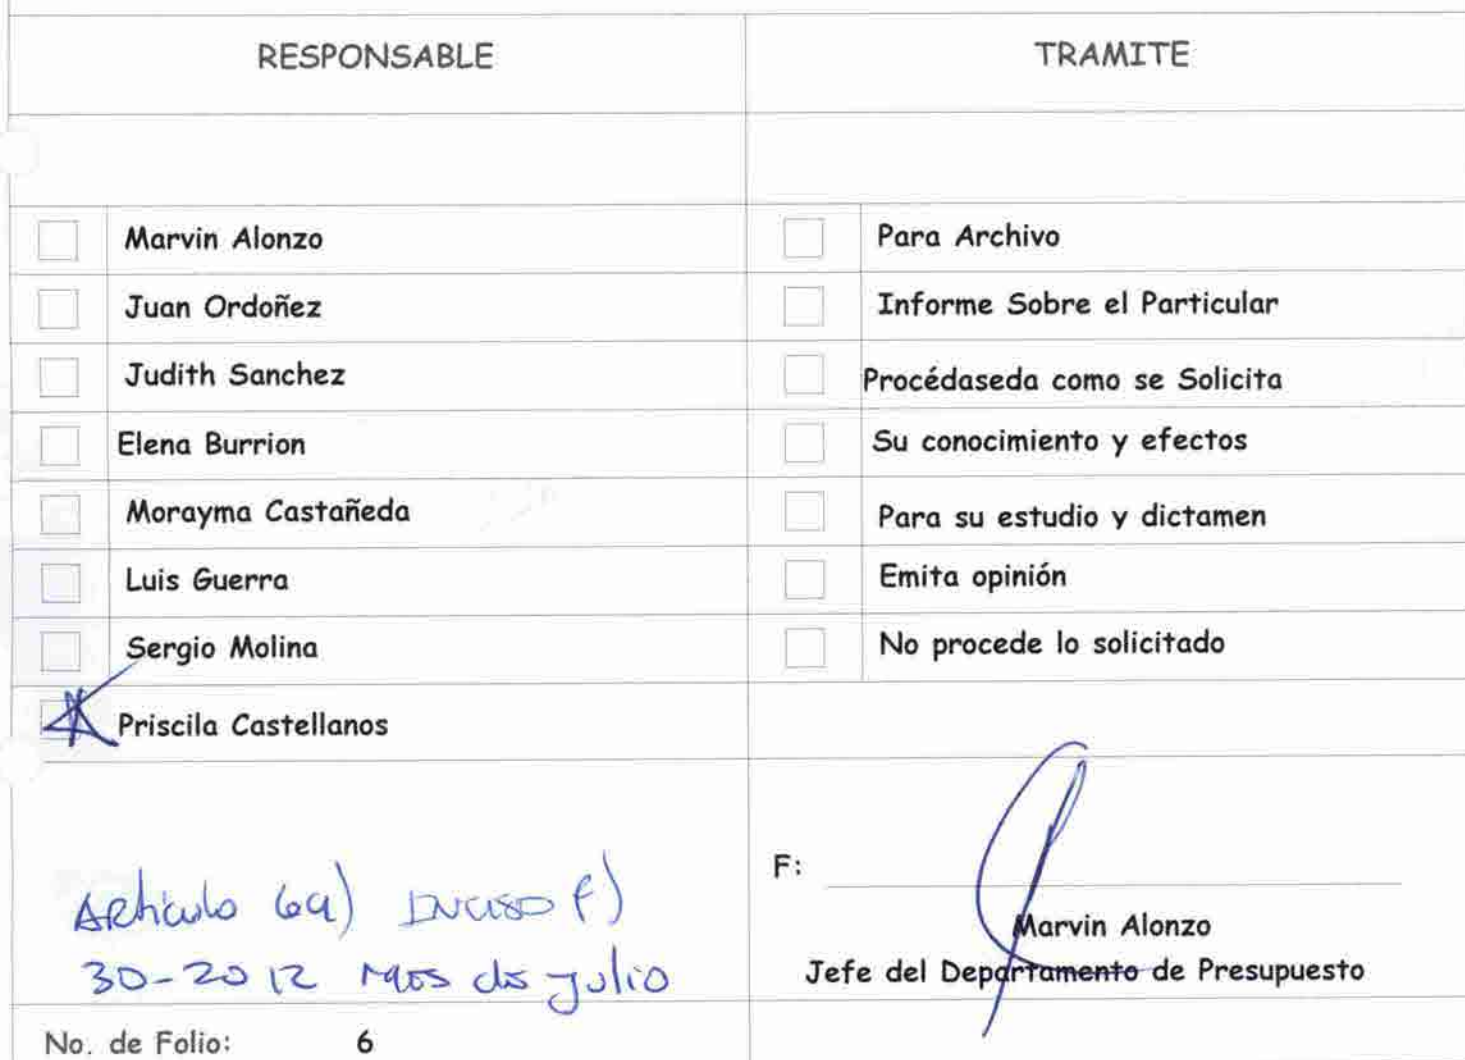 RESPONSABLE TRAMITE
Marvin Alonzo Para Archivo
Juan Ordoñez Informe Sobre el Particular
Judith Sanchez Procédaseda como se Solicita
Elena Burrion Su conocimiento y efectos
Morayma Castañeda Para su estudio y dictamen
Luis Guerra Emita opinión
Sergio Molina No procede lo solicitado
Priscila Castellanos
F:
Articulo 69) Inciso f)
30-2012 Mes de julio
Marvin Alonzo
Jefe del Departamento de Presupuesto
No. de Folio: 6